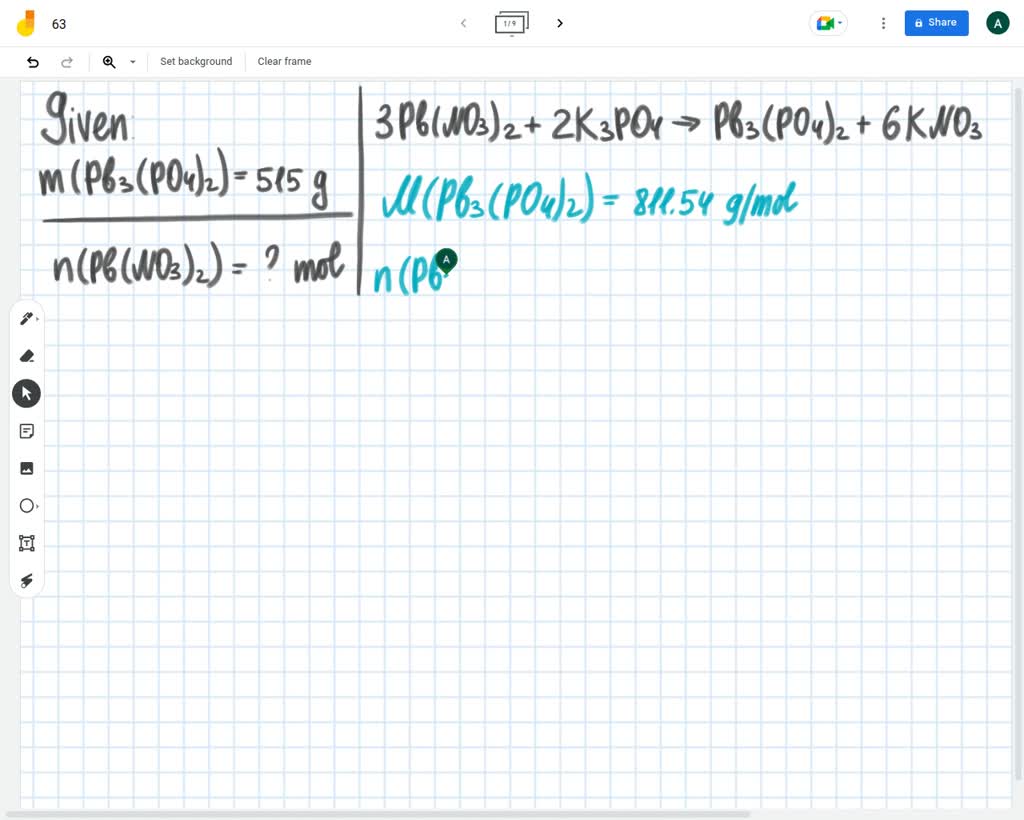 63
1/9
Share
A
Set background
Clear frame
Given:
m(Pb₃(PO₄)₂) = 515 g
n(Pb(NO₃)₂) = ? mol
3Pb(NO₃)₂ + 2K₃PO₄ → Pb₃(PO₄)₂ + 6KNO₃
M(Pb₃(PO₄)₂) = 811.54 g/mol
n(Pb
A